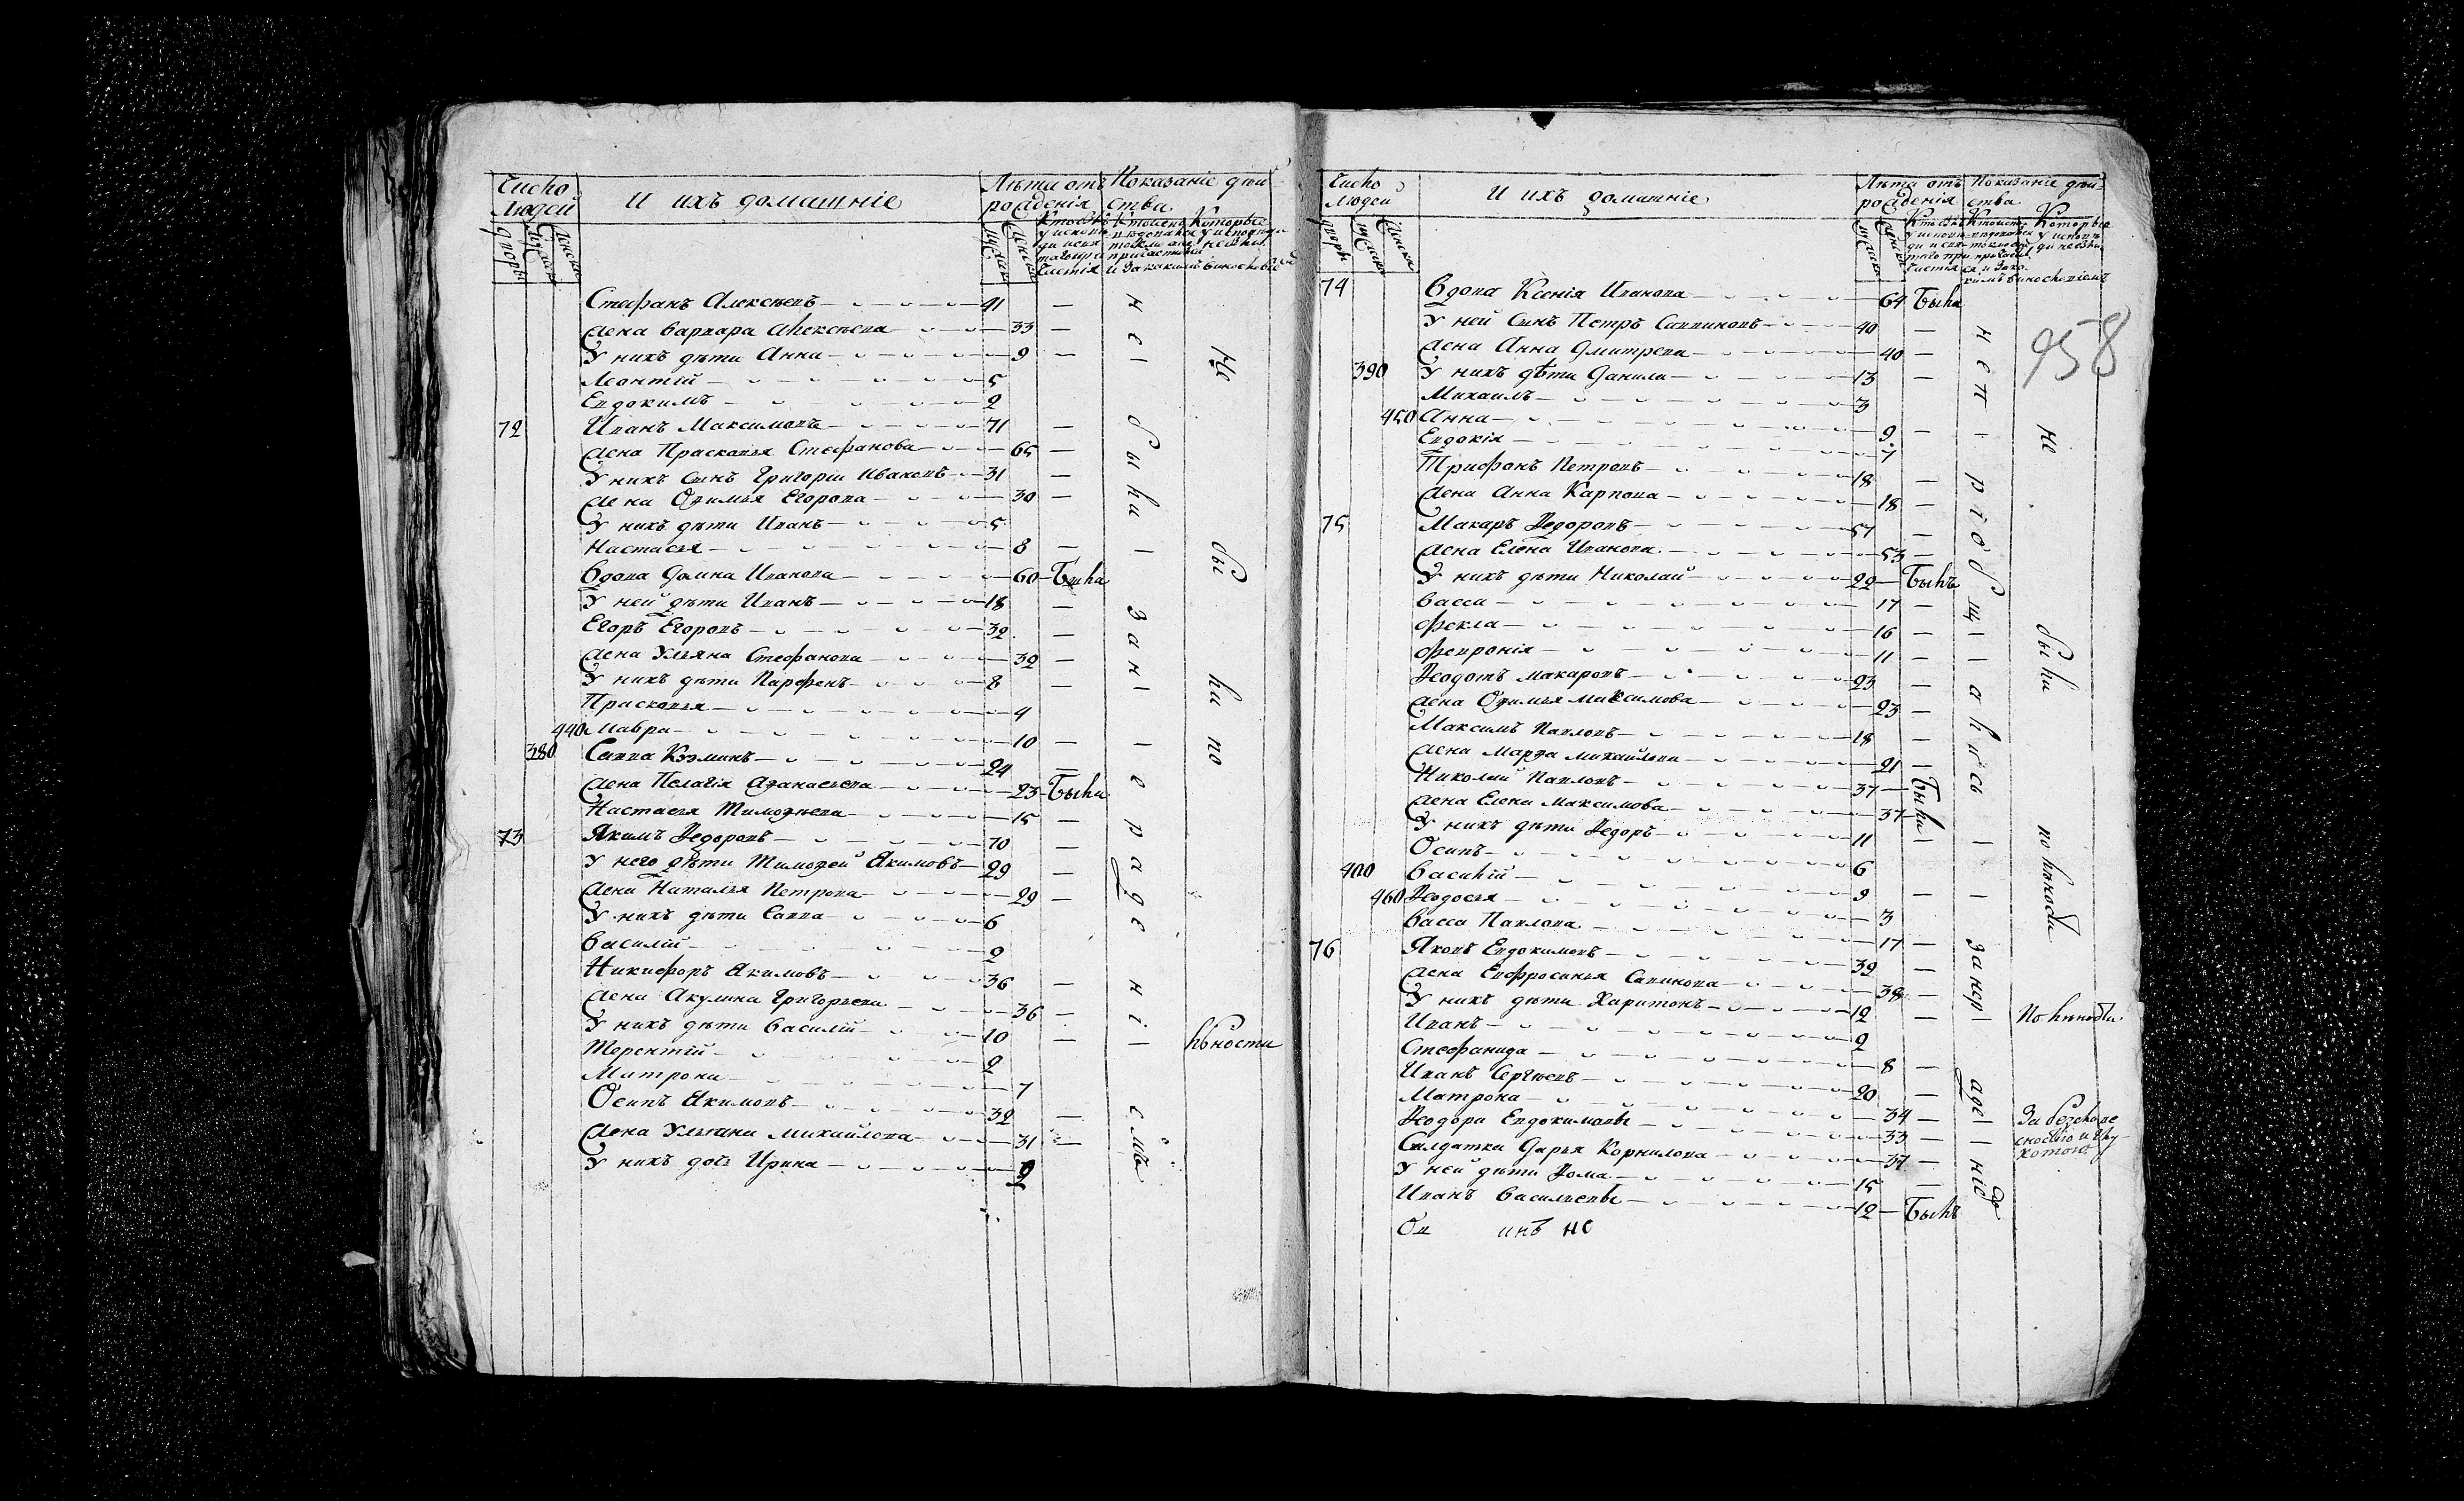 Число Людей
И ихъ домашніе
Лѣта отъ рожденія
Показаніе дѣйства
Стефанъ Алексѣевъ 41
Жена Варвара Алексѣева 33
У нихъ дѣти Анна 9
Леонтій 5
Евдокимъ 2
72 Иванъ Максимовъ 71
Жена Прасковья Стефанова 65
У нихъ Сынъ Григорій Ивановъ 31
Жена Офимья Егорова 30
У нихъ дѣти Иванъ 5
Настасья 8
Вдова Домна Иванова 60 Была
У ней дѣти Иванъ 18
Егоръ Егоровъ 32
Жена Ульяна Стефанова 32
У нихъ дѣти Парфенъ 8
Прасковья 4
440 Мавра 10
380 Савва Козминъ 24
Жена Пелагія Афанасьева 23 Были
Настасья Тимофѣева 15
73 Якимъ Ѳедоровъ 70
У него дѣти Тимофей Якимовъ 29
Жена Наталья Петрова 29
У нихъ дѣти Савва 6
Василій 2
Никифоръ Якимовъ 36
Жена Акулина Григорьева 36
У нихъ дѣти Василій 10
Терентій 2
Матрона 7
Осипъ Якимовъ 32
Жена Ульяна Михайлова 31
У нихъ дочь Ирина 2
не были за нерадѣніемъ
Не были по
льности
Число Людей
И ихъ домашніе
Лѣта отъ рожденія
Показаніе дѣйства
958
74 Вдова Ксенія Иванова 64 Была
У ней Сынъ Петръ Саввиновъ 40
Жена Анна Дмитрева 40
390 У нихъ дѣти Данила 13
Михаилъ 3
450 Анна 9
Евдокія 7
Трифонъ Петровъ 18
Жена Анна Карпова 18
75 Макаръ Ѳедоровъ 57
Жена Елена Иванова 53
У нихъ дѣти Николай 22 Былъ
Васса 17
Фекла 16
Февронія 11
Ѳедотъ Макаровъ 23
Жена Офимья Максимова 23
Максимъ Павловъ 18
Жена Марфа Михайлова 21
Николай Павловъ 37 Были
Жена Елена Максимова 37
У нихъ дѣти Ѳедоръ 11
Осипъ 6
400 Василій 9
460 Ѳеодосья 3
Васса Павлова 17
76 Яковъ Евдокимовъ 39
Жена Евфросинья Саввинова 39
У нихъ дѣти Харитонъ 12
Иванъ 2
Стефанида 8
Иванъ Сергѣевъ 20
Матрона 34
Ѳеодора Евдокимовы 33
Салдатка Дарья Корнилова 37
У ней дѣти Ѳома 15
Иванъ Васильевы 12 Былъ
инъ не
не пріобщались за нерадѣніе
не были